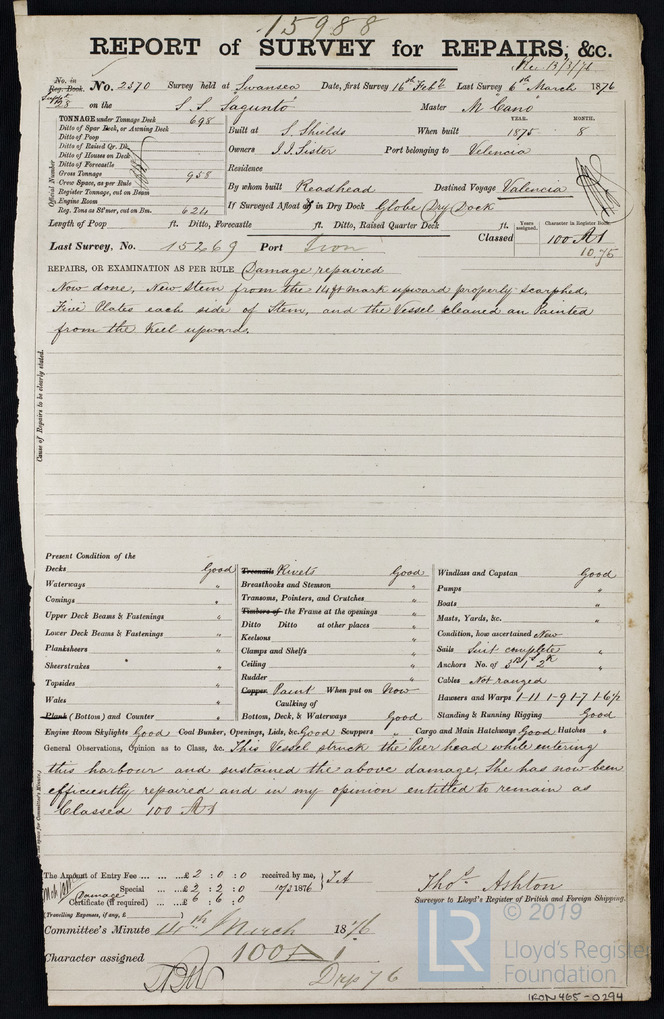 15988
REPORT of SURVEY for REPAIRS, &c.
Rec 13/3/76
No. in Reg. Book. No. 2370 Survey held at Swansea Date, first Survey 16th Feby Last Survey 6th March 1876
Suppt 28 on the S.S. Sagunto Master M Cano
TONNAGE under Tonnage Deck 698
Ditto of Spar Deck, or Awning Deck
Ditto of Poop
Ditto of Raised Qr. Dk.
Ditto of Houses on Deck
Ditto of Forecastle
Gross Tonnage 958
Crew Space, as per Rule
Register Tonnage, cut on Beam
Engine Room
Reg. Tons as St'mer, cut on Bm. 624
Official Number
Built at S. Shields When built YEAR. 1875 MONTH. 8
Owners J.J. Sister Port belonging to Velencia
Residence
By whom built Readhead Destined Voyage Valencia
If Surveyed Afloat or in Dry Dock Globe Dry Dock
Length of Poop ft. Ditto, Forecastle ft. Ditto, Raised Quarter Deck ft.
Years assigned. Character in Register Book
Classed 100 A1
10.75
Last Survey, No. 15269 Port Iron
REPAIRS, OR EXAMINATION AS PER RULE Damage repaired
Now done, New Stem from the 14ft mark upward properly scarphed,
Five Plates each side of Stem, and the Vessel cleaned an Painted
from the Keel upward.
Cause of Repairs to be clearly stated.
Present Condition of the
Decks Good
Waterways "
Comings "
Upper Deck Beams & Fastenings "
Lower Deck Beams & Fastenings "
Planksheers "
Sheerstrakes "
Topsides "
Wales "
Plank (Bottom) and Counter "
Treenails Rivets Good
Breasthooks and Stemson "
Transoms, Pointers, and Crutches "
Timbers of the Frame at the openings "
Ditto Ditto at other places "
Keelsons "
Clamps and Shelfs "
Ceiling "
Rudder "
Copper Paint When put on Now
Caulking of
Bottom, Deck, & Waterways Good
Windlass and Capstan Good
Pumps "
Boats "
Masts, Yards, &c. "
Condition, how ascertained New
Sails Suit complete "
Anchors No. of 3B 1S 2K "
Cables Not ranged
Hawsers and Warps 1-11 1-9 1-7 1-6½
Standing & Running Rigging Good
Engine Room Skylights Good Coal Bunker, Openings, Lids, &c. Good Scuppers " Cargo and Main Hatchways Good Hatches "
General Observations, Opinion as to Class, &c. This Vessel struck the Pier head while entering
this harbour and sustained the above damage. She has now been
efficiently repaired and in my opinion entitled to remain as
Classed 100 A1
The Amount of Entry Fee ... ... £2 : 0 : 0 received by me,
Special ... £2 : 2 : 0 10/3 1876 T.A
Damage
Certificate (if required) ... £6 : 6 : 0
(Travelling Expenses, if any, £ )
Thos. Ashton
Surveyor to Lloyd's Register of British and Foreign Shipping.
Committee's Minute 14th March 1876
Character assigned 100 A 1
© 2019
LR
Lloyd's Register
Foundation
IRON 465-0294